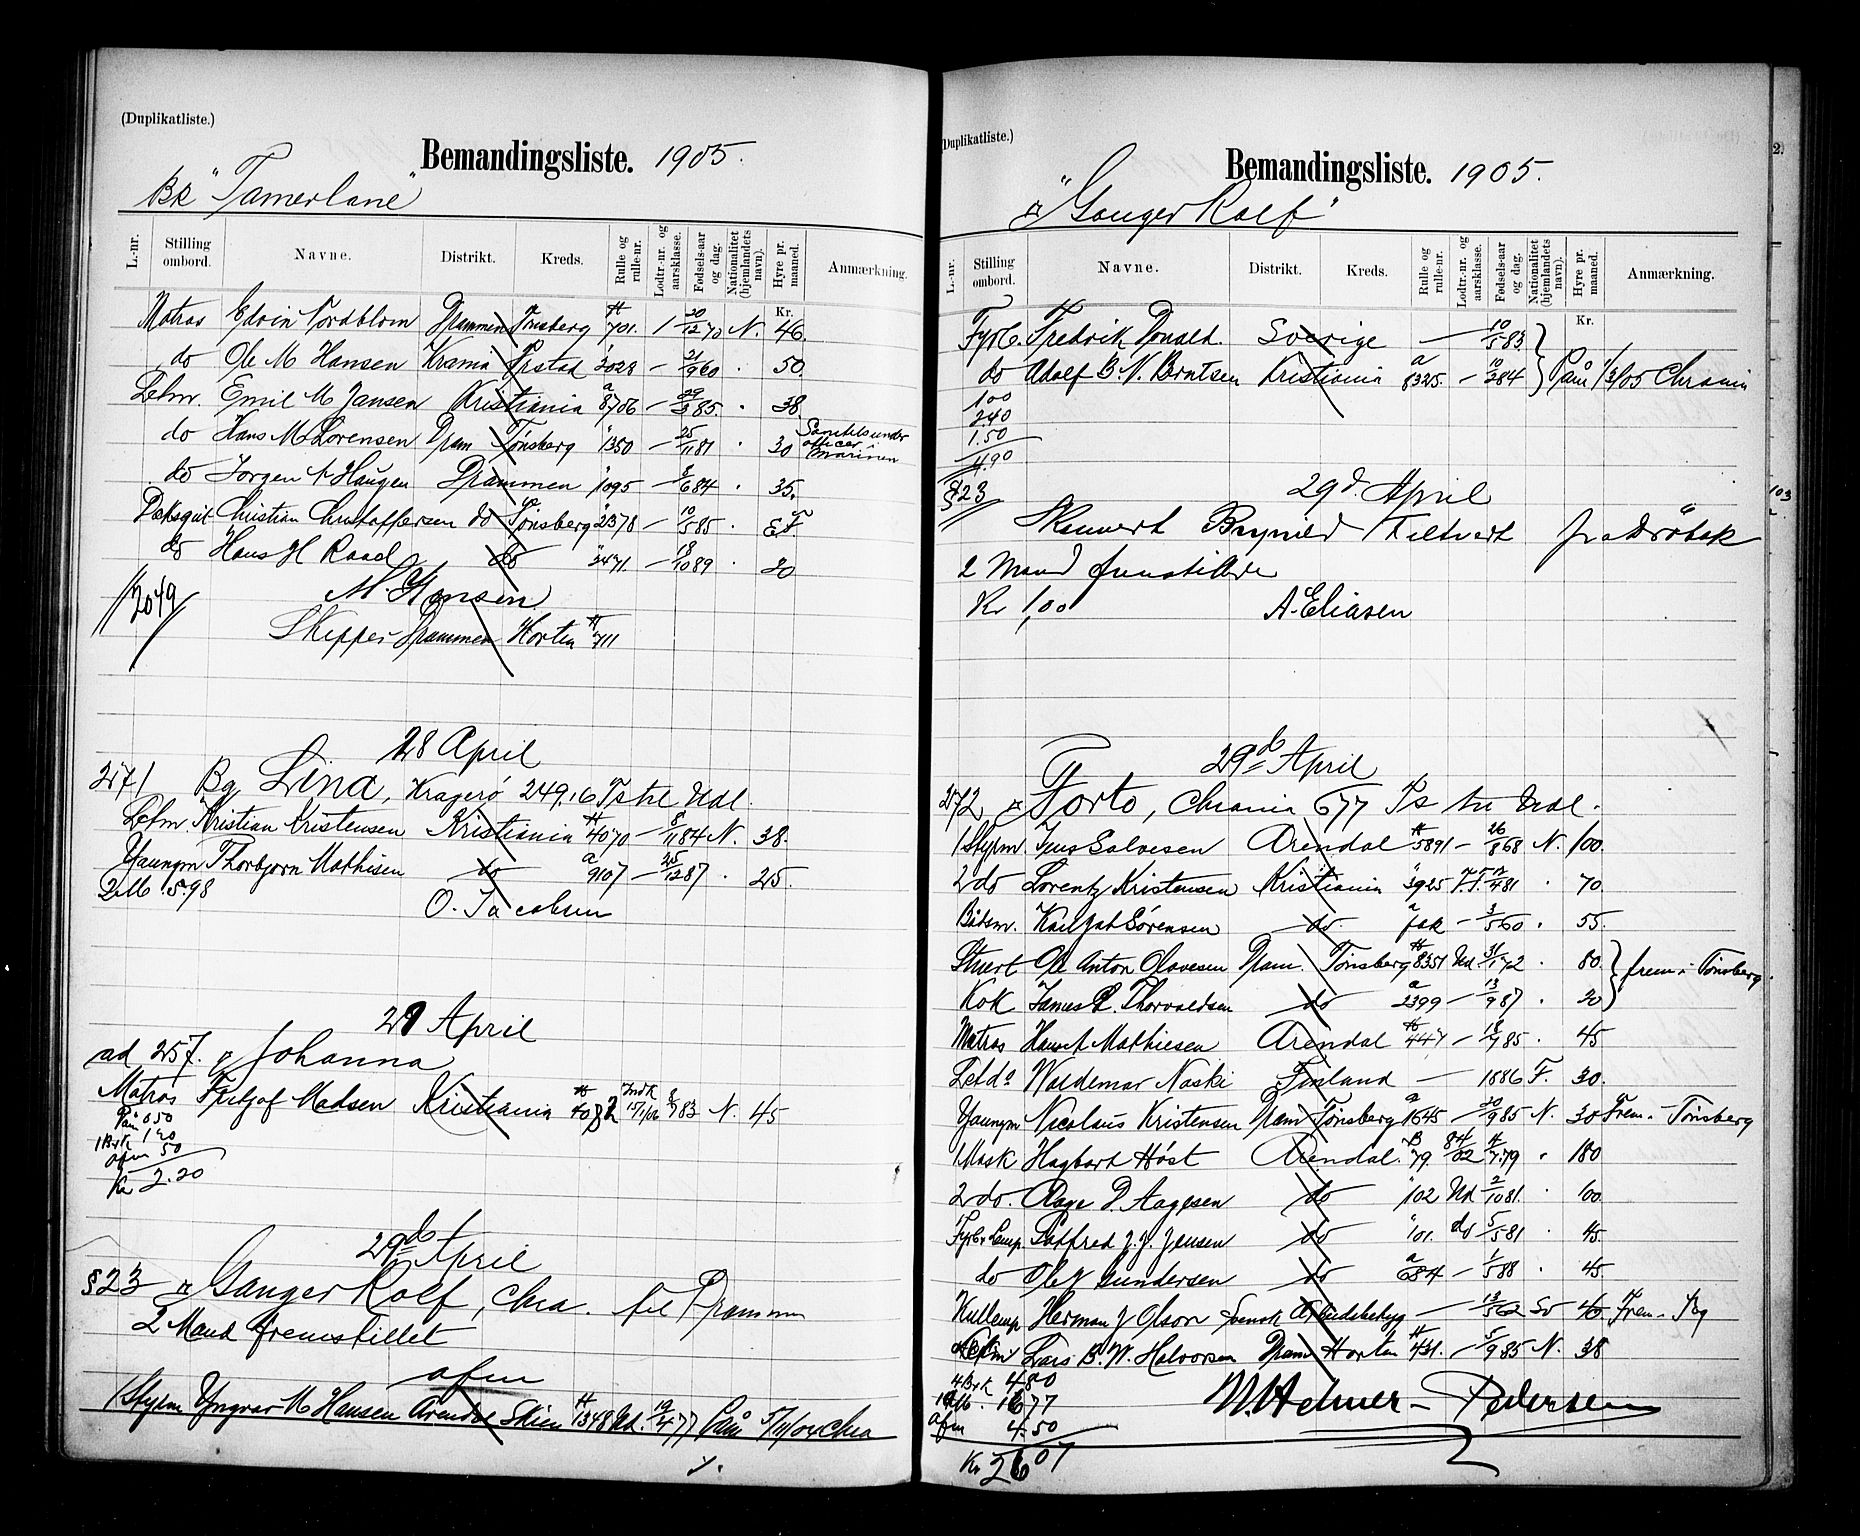 (Duplikatliste.)
Bemandingsliste. 1905.
Bk "Tamerlane"
L.-nr.
Stilling ombord.
Navne.
Distrikt.
Kreds.
Rulle og rulle-nr.
Lodtr.-nr. og aarsklasse.
Fødsels-aar og dag.
Nationalitet (hjemlandets navn).
Hyre pr. maaned.
Anmærkning.
Kr.
Matros Edvin Nordblom Drammen Tønsberg 701. 1 20/12 70 N. 46
do Ole M Hansen Krania 3028 – 21/9 60 50.
Letm. Emil M Jansen Kristiania a 8706 – 29/3 85. 38
do Hans M Lorensen Dram Tønsberg 1350 – 25/11 81 30 officer marinen
do Jørgen A Haugen Drammen 1095 – 8/6 84 35.
Dæksgut Christian Christoffersen do Tønsberg 2378 – 10/5 85
do Hans H Raad do 3471. – 18/10 89 20
2049
M. Hansen
Skipper Drammen Horten 711
28 April
271 Bg Lina, Kragerö 249,16 Ts til Udl.
Letm Kristian Kristensen Kristiania 4070 – 8/11 84 N. 38.
Youngm Thorbjørn Mathisen do a 9107 – 25/12 87 25.
2.M. 5.98
O. Jacobsen
29 April
ad 257. Johanna
Matros Fritjof Madsen Kristiania 4072 83 N. 45
Pam 0 50
1 Brk 1 20
afm 50
Kr 2.20
29d April
§ 23 "Ganger Rolf, Chra. til Drammen
2 Mand fremstillet
afm
1 Styrm Yngvar M Hansen Arendal Skien 1348 Ud. 19/4 77 Pam 5/11/04 Chra
(Duplikatliste.)
Bemandingsliste. 1905.
"Ganger Rolf"
L.-nr.
Stilling ombord.
Navne.
Distrikt.
Kreds.
Rulle og rulle-nr.
Lodtr.-nr. og aarsklasse.
Fødsels-aar og dag.
Nationalitet (hjemlandets navn).
Hyre pr. maaned.
Anmærkning.
Kr.
Fyrb. Fredrik Donald. Sverige – 10/5 83
do Adolf B. N. Berntsen Kristiania a 8325. – 10/3 84 Pam 1/3/05 Chrania
100
2.40
1.50
4.90
§ 23 29d. April
Brynild Filtvert fra Drøbak
2 Mand fremstillede
Kr 1,00 A. Eliasen
29d April
272 Torto, Chrania 677 Ts til Udl.
1 Styrm Jens Salvesen Arendal 5891 – 26/8 68 N. 100.
2 do Lorentz Kristensen Kristiania 3925 81 70
Båtsm. Karl Sørensen do. a – 3/5 60. 55.
Stuert Ole Anton Olavesen Dram. Tønsberg 8351 Ud 31/1 72 80. frem i Tønsberg.
Kok James Thorvaldsen do a 2399 – 13/9 87 20
Matros Hans A Mathiesen Arendal 4447 – 18/9 85. 45
Letdo Waldemar Naski Finland – 1886 F. 30.
Youngm Nicolaus Kristensen Dram Tønsberg a 1645 – 20/9 85 N. 30 Frem. Tønsberg
1 Mask Hagbart Høst Arendal. B 79. 84/02 4/7 79 180
2 do. Aage P. Aagesen do 102 Ud 2/10 81. 100.
Fyrb. Lemp. Gotfred J. J. Jensen do 101. do 5/5 81 45.
do Ole N Gundersen do a 684 – 1/5 88 45.
Kullemp Herman J Olson Svensk Arbeidsbetyg – 13/5 62 Sv 40. Frem. Tbg
Letm Lars B. W. Halvorsen Dram Horten 431. – 5/9 85 N. 38
4 Brk 4 80
16 77
afm 4.50
Kr 26 07
M. Helmer-Pedersen
103